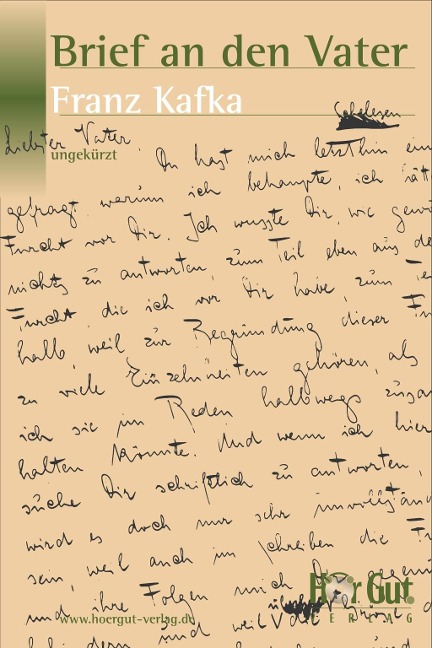 Brief an den Vater
Franz Kafka
Schelesen
Liebster Vater,
ungekürzt
Du hast mich letzthin ein
gefragt, warum ich behaupte, ich hätt
Furcht vor Dir. Ich wusste Dir, wie gewö
nichts zu antworten, zum Teil eben aus de
Furcht die ich vor Dir habe, zum
halb, weil zur Begründung dieser Fu
zu viele Einzelheiten gehören, als
ich sie im Reden halbwegs zusam
halten könnte. Und wenn ich hier
suche Dir schriftlich zu antworten,
wird es doch nur sehr unvollständ
sein, weil auch im Schreiben die Fu
und ihre Folgen mich Dir gegenü
HörGut
VERLAG
www.hoergut-verlag.de
und weil